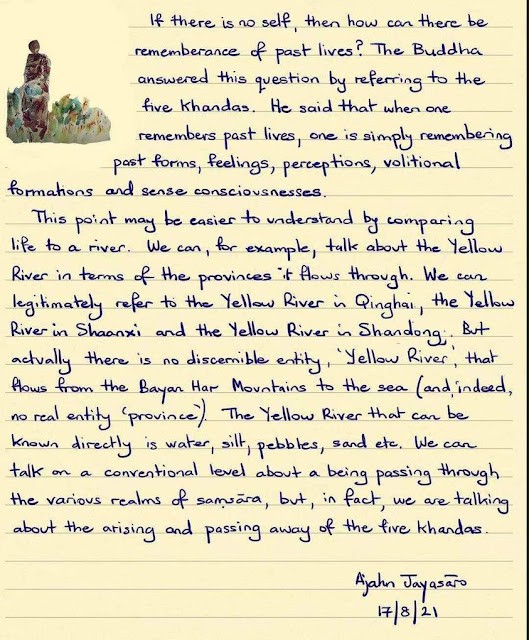 If there is no self, then how can there be
rememberance of past lives? The Buddha
answered this question by referring to the
five khandas. He said that when one
remembers past lives, one is simply remembering
past forms, feelings, perceptions, volitional
formations and sense consciousnesses.
This point may be easier to understand by comparing
life to a river. We can, for example, talk about the Yellow
River in terms of the provinces it flows through. We can
legitimately refer to the Yellow River in Qinghai, the Yellow
River in Shaanxi and the Yellow River in Shandong. But
actually there is no discernible entity, 'Yellow River', that
flows from the Bayan Har Mountains to the sea (and, indeed,
no real entity 'province'). The Yellow River that can be
known directly is water, silt, pebbles, sand etc. We can
talk on a conventional level about a being passing through
the various realms of saṃsāra, but, in fact, we are talking
about the arising and passing away of the five khandas.
Ajahn Jayasāro
17/8/21